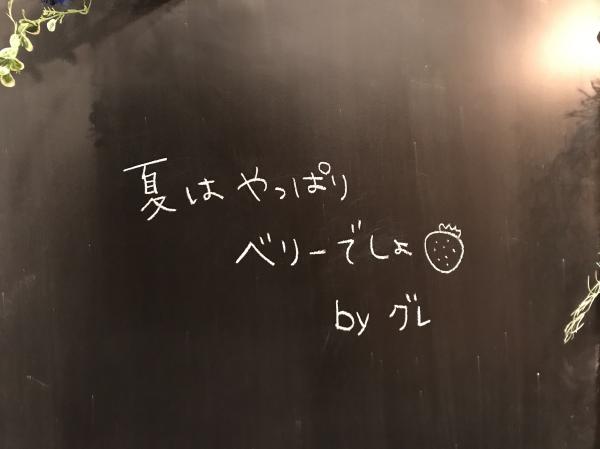 夏はやっぱり
ベリーでしょ
by グレ